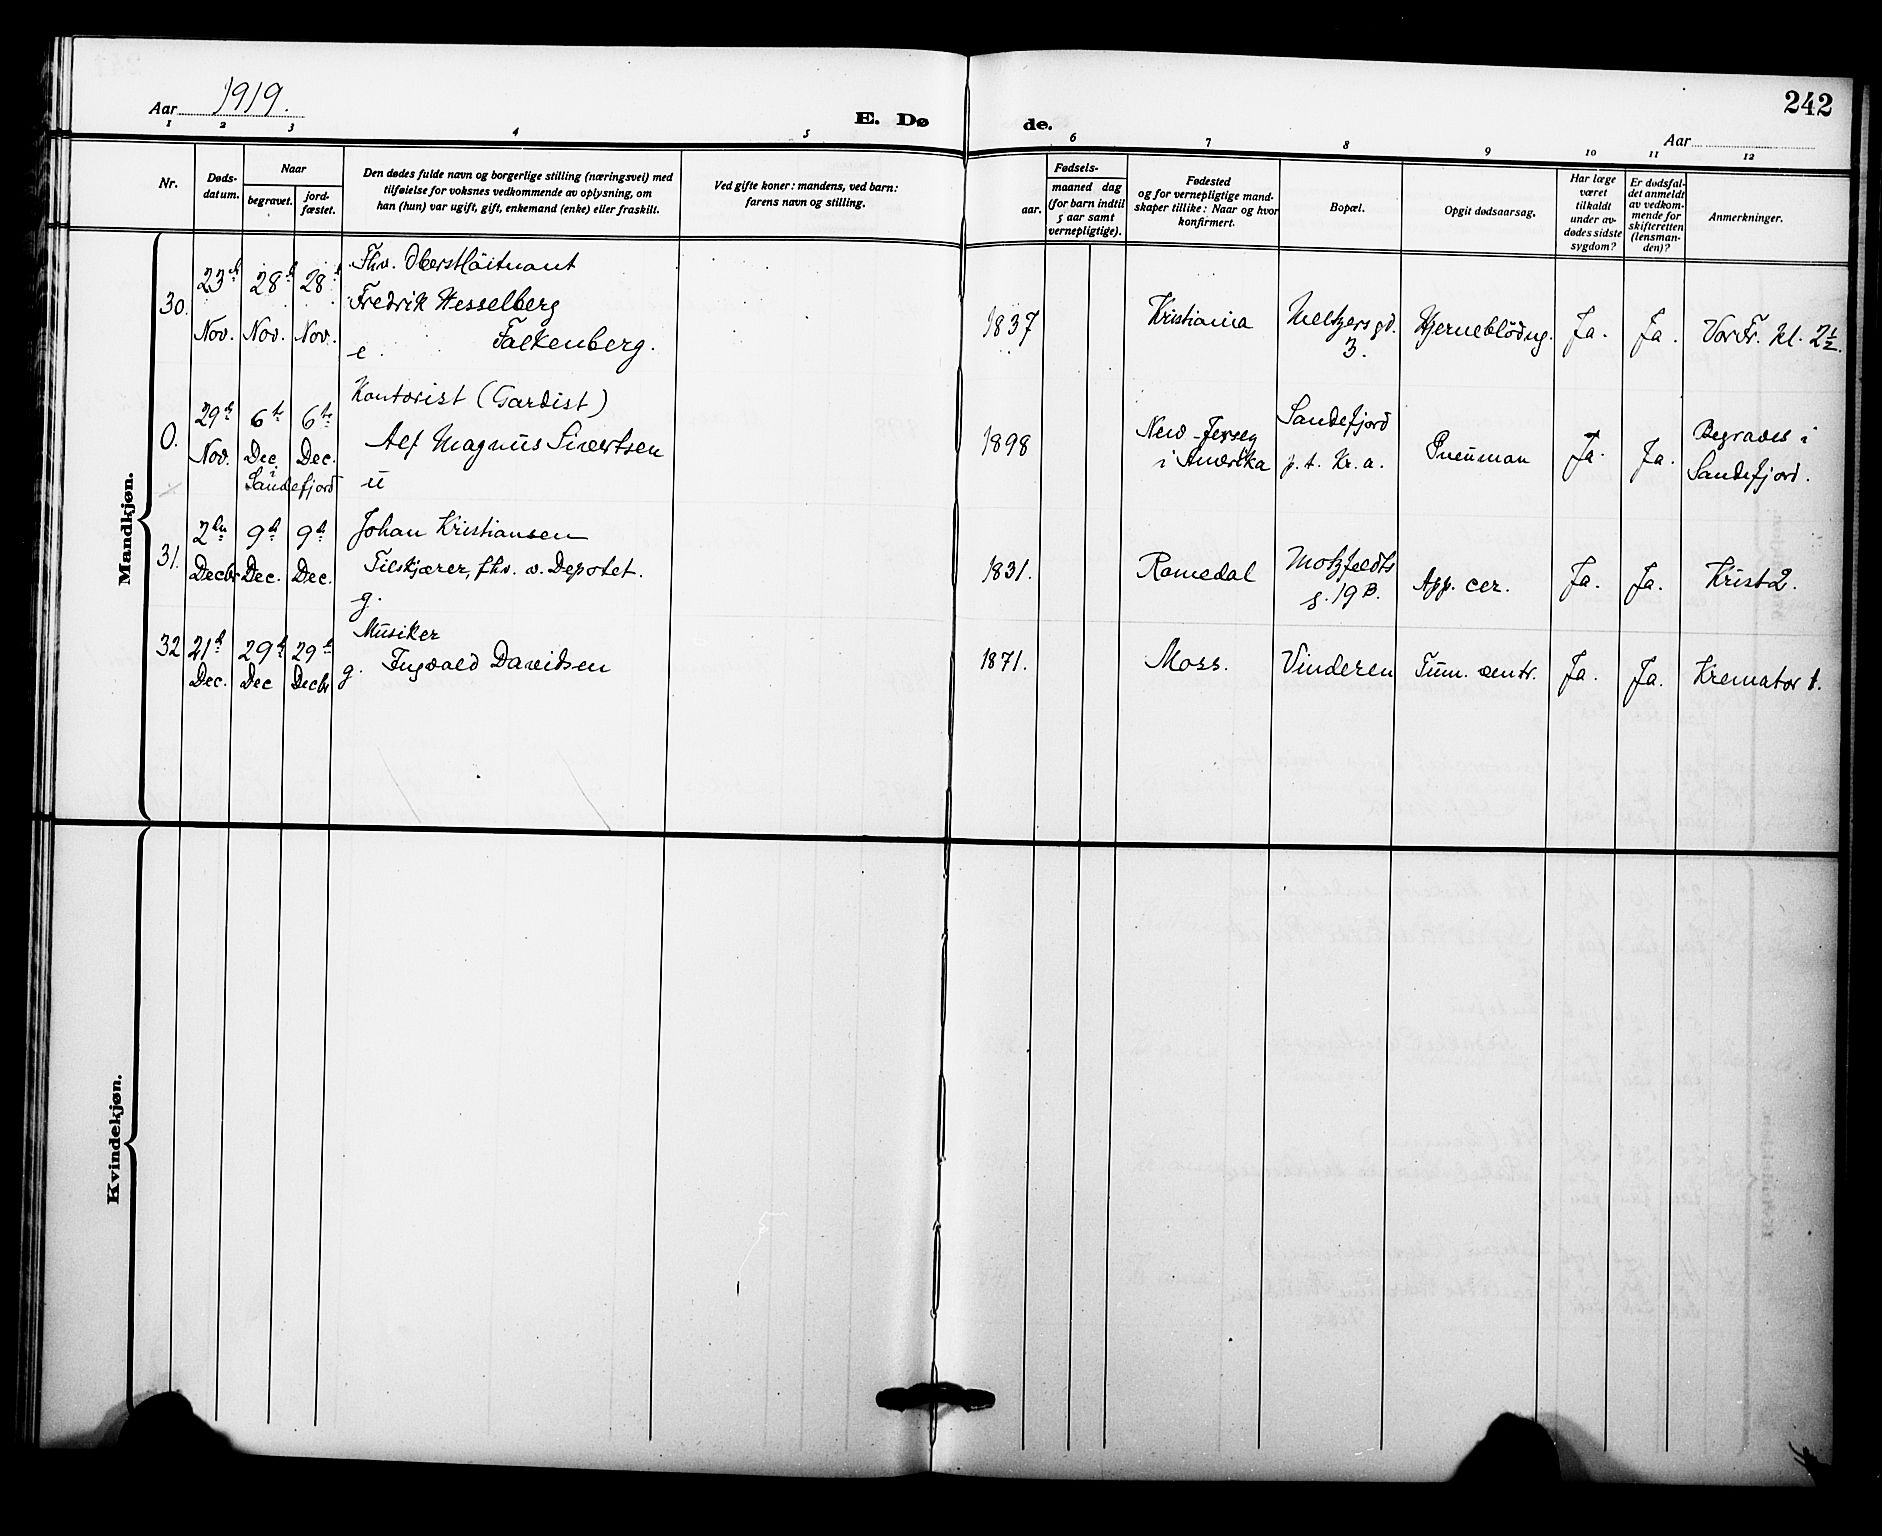 242
Aar 1919.
E. Dø de.
Aar
1 2 3 4 5 6 7 8 9 10 11 12
Nr.
Døds-
datum.
Naar
begravet.
jord-
fæstet.
Den dødes fulde navn og borgerlige stilling (næringsvei) med
tilføielse for voksnes vedkommende av oplysning, om
han (hun) var ugift, gift, enkemand (enke) eller fraskilt.
Ved gifte koner: mandens, ved barn:
farens navn og stilling.
Fødsels-
aar.
maaned dag
(for barn indtil
5 aar samt
vernepligtige).
Fødested
og for vernepligtige mand-
skaper tillike: Naar og hvor
konfirmert.
Bopæl.
Opgit dødsaarsag.
Har læge
været
tilkaldt
under av-
dødes sidste
sygdom?
Er dødsfal-
det anmeldt
av vedkom-
mende for
skifteretten
(lensman-
den)?
Anmerkninger.
Mandkjøn.
30.
23d
Nov.
28d
Nov.
28d
Nov.
Fhv. Oberstløitnant
Fredrik Hesselberg
e. Falkenberg.
1837
Kristiania
Meltzersgd.
3.
Hjerneblödng.
Ja.
Ja.
Vor Fr. kl. 2½.
0.
29d
Nov.
6te
Dec.
6te
Dec.
i
Sandefjord
Kontorist (Gardist)
Alf Magnus Sivertsen
u
1898
New-Jersey
i Amerika
Sandefjord
p.t. Kr.a.
Pneumon
Ja.
Ja.
Begraves i
Sandefjord.
31.
2den
Decbr
9d
Dec.
9d
Dec.
Johan Kristiansen
Tilskjærer, fhv. v. Depotet.
g.
1831.
Romedal
Motzfeldts
g. 19 B.
App. cer.
Ja.
Ja.
Krist 2.
32
21d
Dec.
29d
Dec
29d
Decbr
Musiker
g. Ingvald Davidsen
1871.
Moss.
Vinderen
Tum. ventr.
Ja.
Ja.
Kremator 1.
Kvindekjøn.